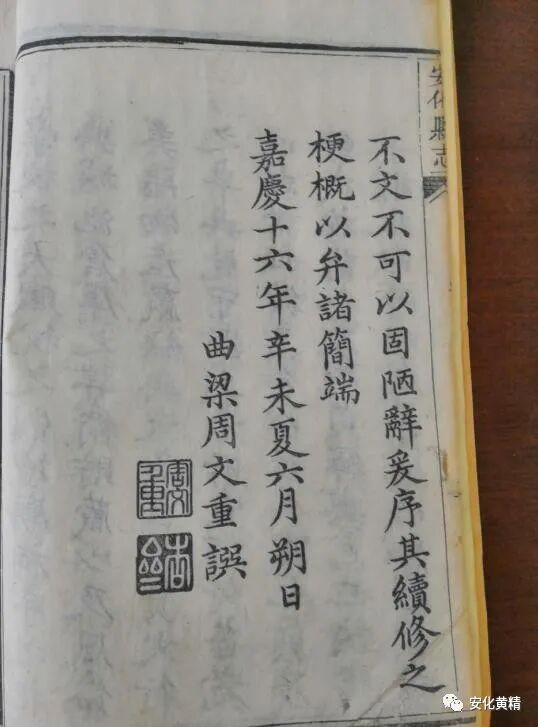 安化縣志
不文不可以固陋辭爰序其續修之
梗概以弁諸簡端
嘉慶十六年辛未夏六月朔日
曲梁周文重譔
安化黄精